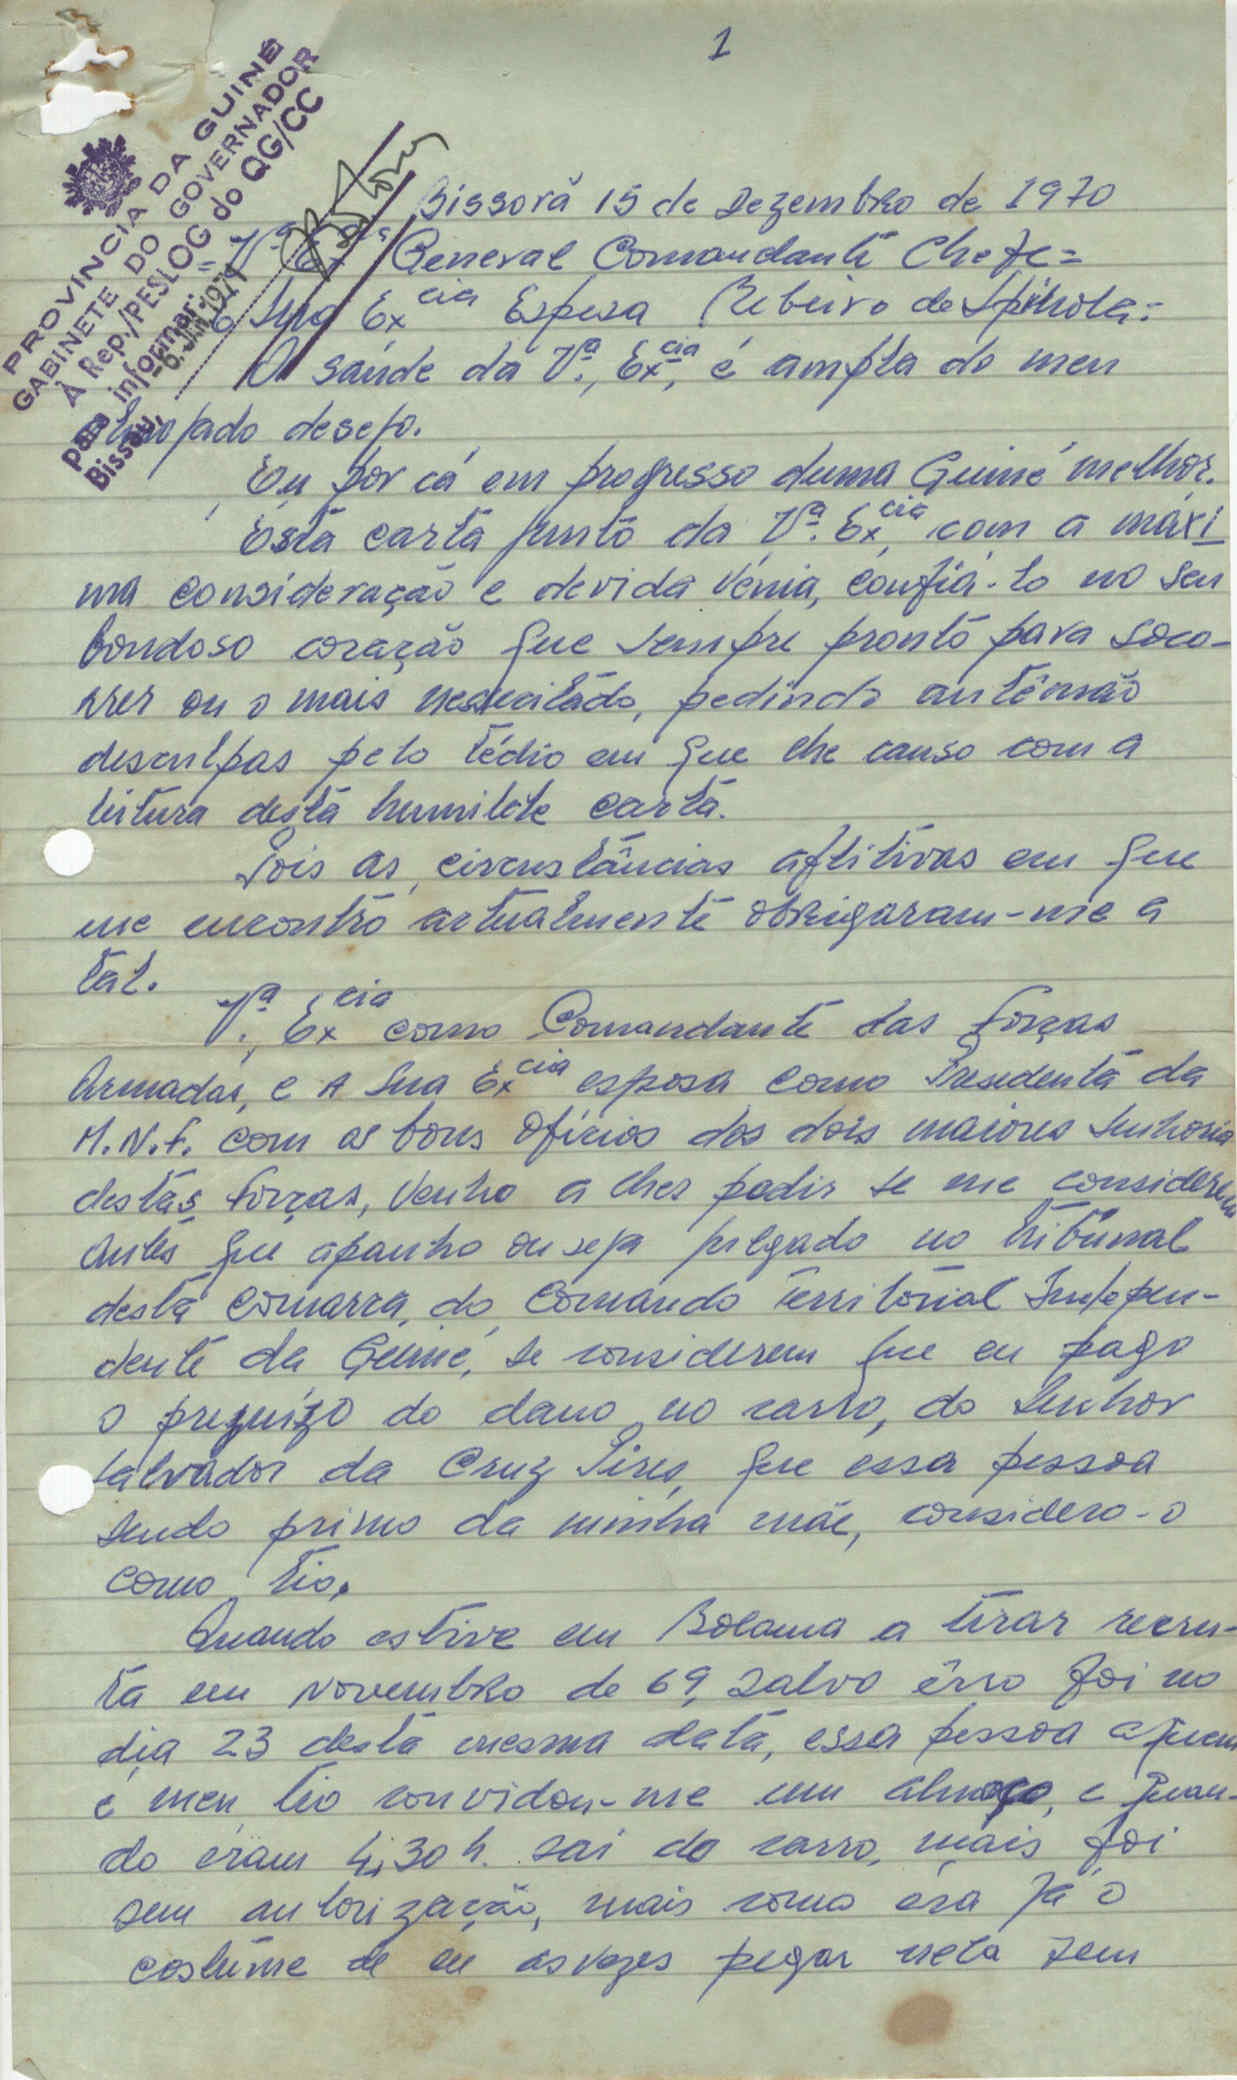 1
PROVINCIA DA GUINÉ
GABINETE DO GOVERNADOR
À Rep./PESLOG do QG/CC
para informar.
Bissau, -6.JAN.1971
Bissorã 15 de Dezembro de 1970
=Vª Exª General Comandantê Chefe=
e Sua Excia Esposa Ribeiro de Spínola:=
A saúde da Vª., Excia, é ampla do meu
desejo.
Eu por cá em progresso duma Guiné melhor.
Está carta juntó da Vª. Excia, com a máxi
ma consideração e devida vénia, confiá-lo no seu
bondoso coração que sempre prontó para soco-
rrer ou o mais necessitádo, pedindo antêmão
desculpas pelo tédio em que lhe causo com a
leitura destá humilde cartá.
Pois as circunstâncias aflitivas em que
me encontró actualmenté obrigaram-me a
tal.
Vª., Excia como Comandanté das Forças
Armadas, e A Sua Excia esposa como Presidentá da
M.N.F. com os bons Ofícios dos dois maiores Senhoria
destás Forças, Venho a lhes pedir se me considerem
Antés que apanho ou seja julgado no tribunal
destá comarca, do Comando Territórial Indepen-
denté da Guiné, se considerem que eu pago
o prejuízo do dano no carro, do Senhor
Salvador da Cruz Pires, que essa pessoa
sendo primo da minha mãe, considero-o
como tio.
Quando estive em Bolama a tirar recru-
tá em Novembro de 69, salvo êrro foi no
dia 23 destá mesma datá, essa pessoa aquem
é meu tio convidou-me um almoço, e quan-
do eram 4,30 h. saí do carro, mais foi
sem autorização, mais como éra já o
costúme de eu asvezes pegar nela sem